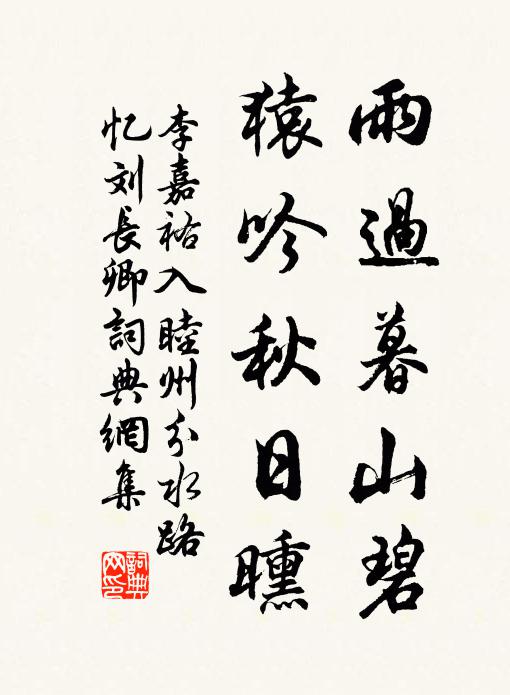 雨過暮山碧
猿吟秋日曛
李嘉祐入睦州分水路
忆刘長卿詞典網集
詞典網印